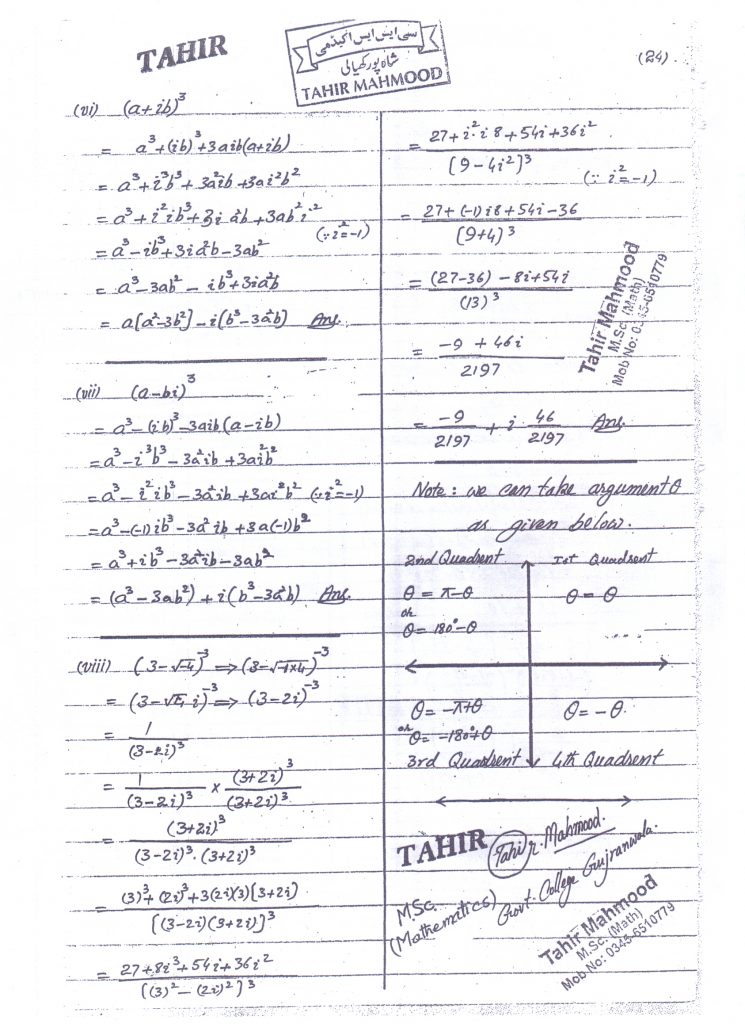 TAHIR
سی ایس ایس اکیڈمی
شاہ پور کھیالی
TAHIR MAHMOOD
(24).
(vi) (a+ib)³
= a³+(ib)³+3aib(a+ib)
= a³+i³b³+3a²ib+3ai²b²
= a³+i²ib³+3i a²b+3ab²i²
(∵i²=-1)
= a³-ib³+3ia²b-3ab²
= a³-3ab²-ib³+3ia²b
= a[a²-3b²]-i(b³-3a²b) Ans.
(vii) (a-bi)³
= a³-(ib)³-3aib(a-ib)
= a³-i³b³-3a²ib+3ai²b²
= a³-i²ib³-3a²ib+3ai²b² (∵i²=-1)
= a³-(-1)ib³-3a²ib+3a(-1)b²
= a³+ib³-3a²ib-3ab²
= (a³-3ab²)+i(b³-3a²b) Ans.
(viii) (3-√-4)⁻³ ⇒ (3-√-1×4)⁻³
= (3-√4 i)⁻³ ⇒ (3-2i)⁻³
= 1/(3-2i)³
= 1/(3-2i)³ × (3+2i)³/(3+2i)³
= (3+2i)³/(3-2i)³.(3+2i)³
= (3)³+(2i)³+3(2i)(3)[3+2i)/[(3-2i)(3+2i)]³
= 27+8i³+54i+36i²/[(3)²-(2i)²]³
= 27+i²·i8+54i+36i²/[9-4i²]³
(∵ i²=-1)
= 27+(-1)i8+54i-36/[9+4)³
= (27-36)-8i+54i/(13)³
= -9+46i/2197
= -9/2197 + i 46/2197 Ans.
Tahir Mahmood
M.Sc. (Math)
Mob No: 0345-6510779
Note: we can take argument θ
as given below.
2nd Quadrent Ist Quadrent
θ = π-θ θ = θ
or
θ= 180°-θ
θ= -π+θ θ= -θ
or
θ= -180°+θ
3rd Quadrent 4th Quadrent
TAHIR
Tahir Mahmood.
M.Sc. Govt. College Gujranwala.
(Mathematics)
Tahir Mahmood
M.Sc. (Math)
Mob No: 0345-6510779